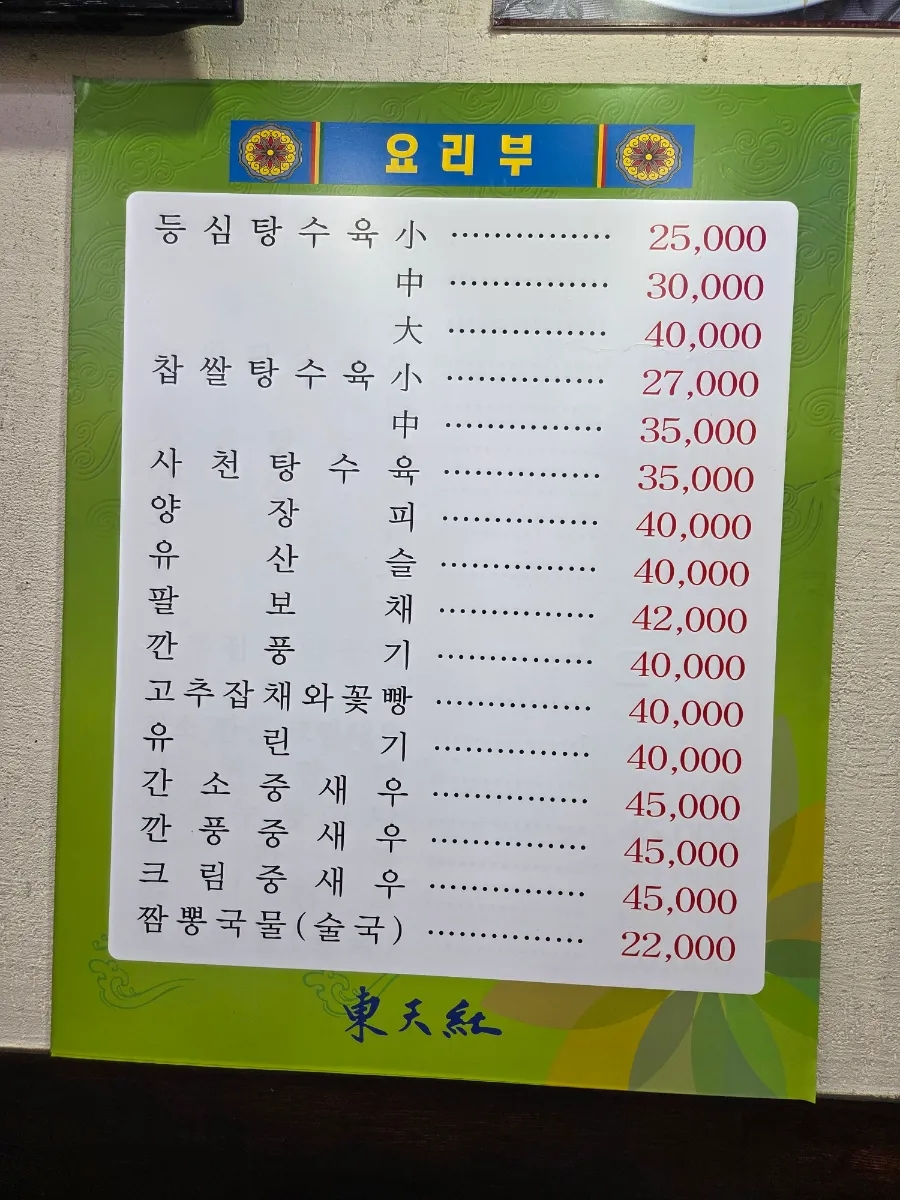 요리부
등심탕수육 小 ............... 25,000
中 ............... 30,000
大 ............... 40,000
찹쌀탕수육 小 ............... 27,000
中 ............... 35,000
사천탕수육 ............... 35,000
양장피 ............... 40,000
유산슬 ............... 40,000
팔보채 ............... 42,000
깐풍기 ............... 40,000
고추잡채와꽃빵 ............... 40,000
유린기 ............... 40,000
간소중새우 ............... 45,000
깐풍중새우 ............... 45,000
크림중새우 ............... 45,000
짬뽕국물(술국) ............... 22,000
東天紅